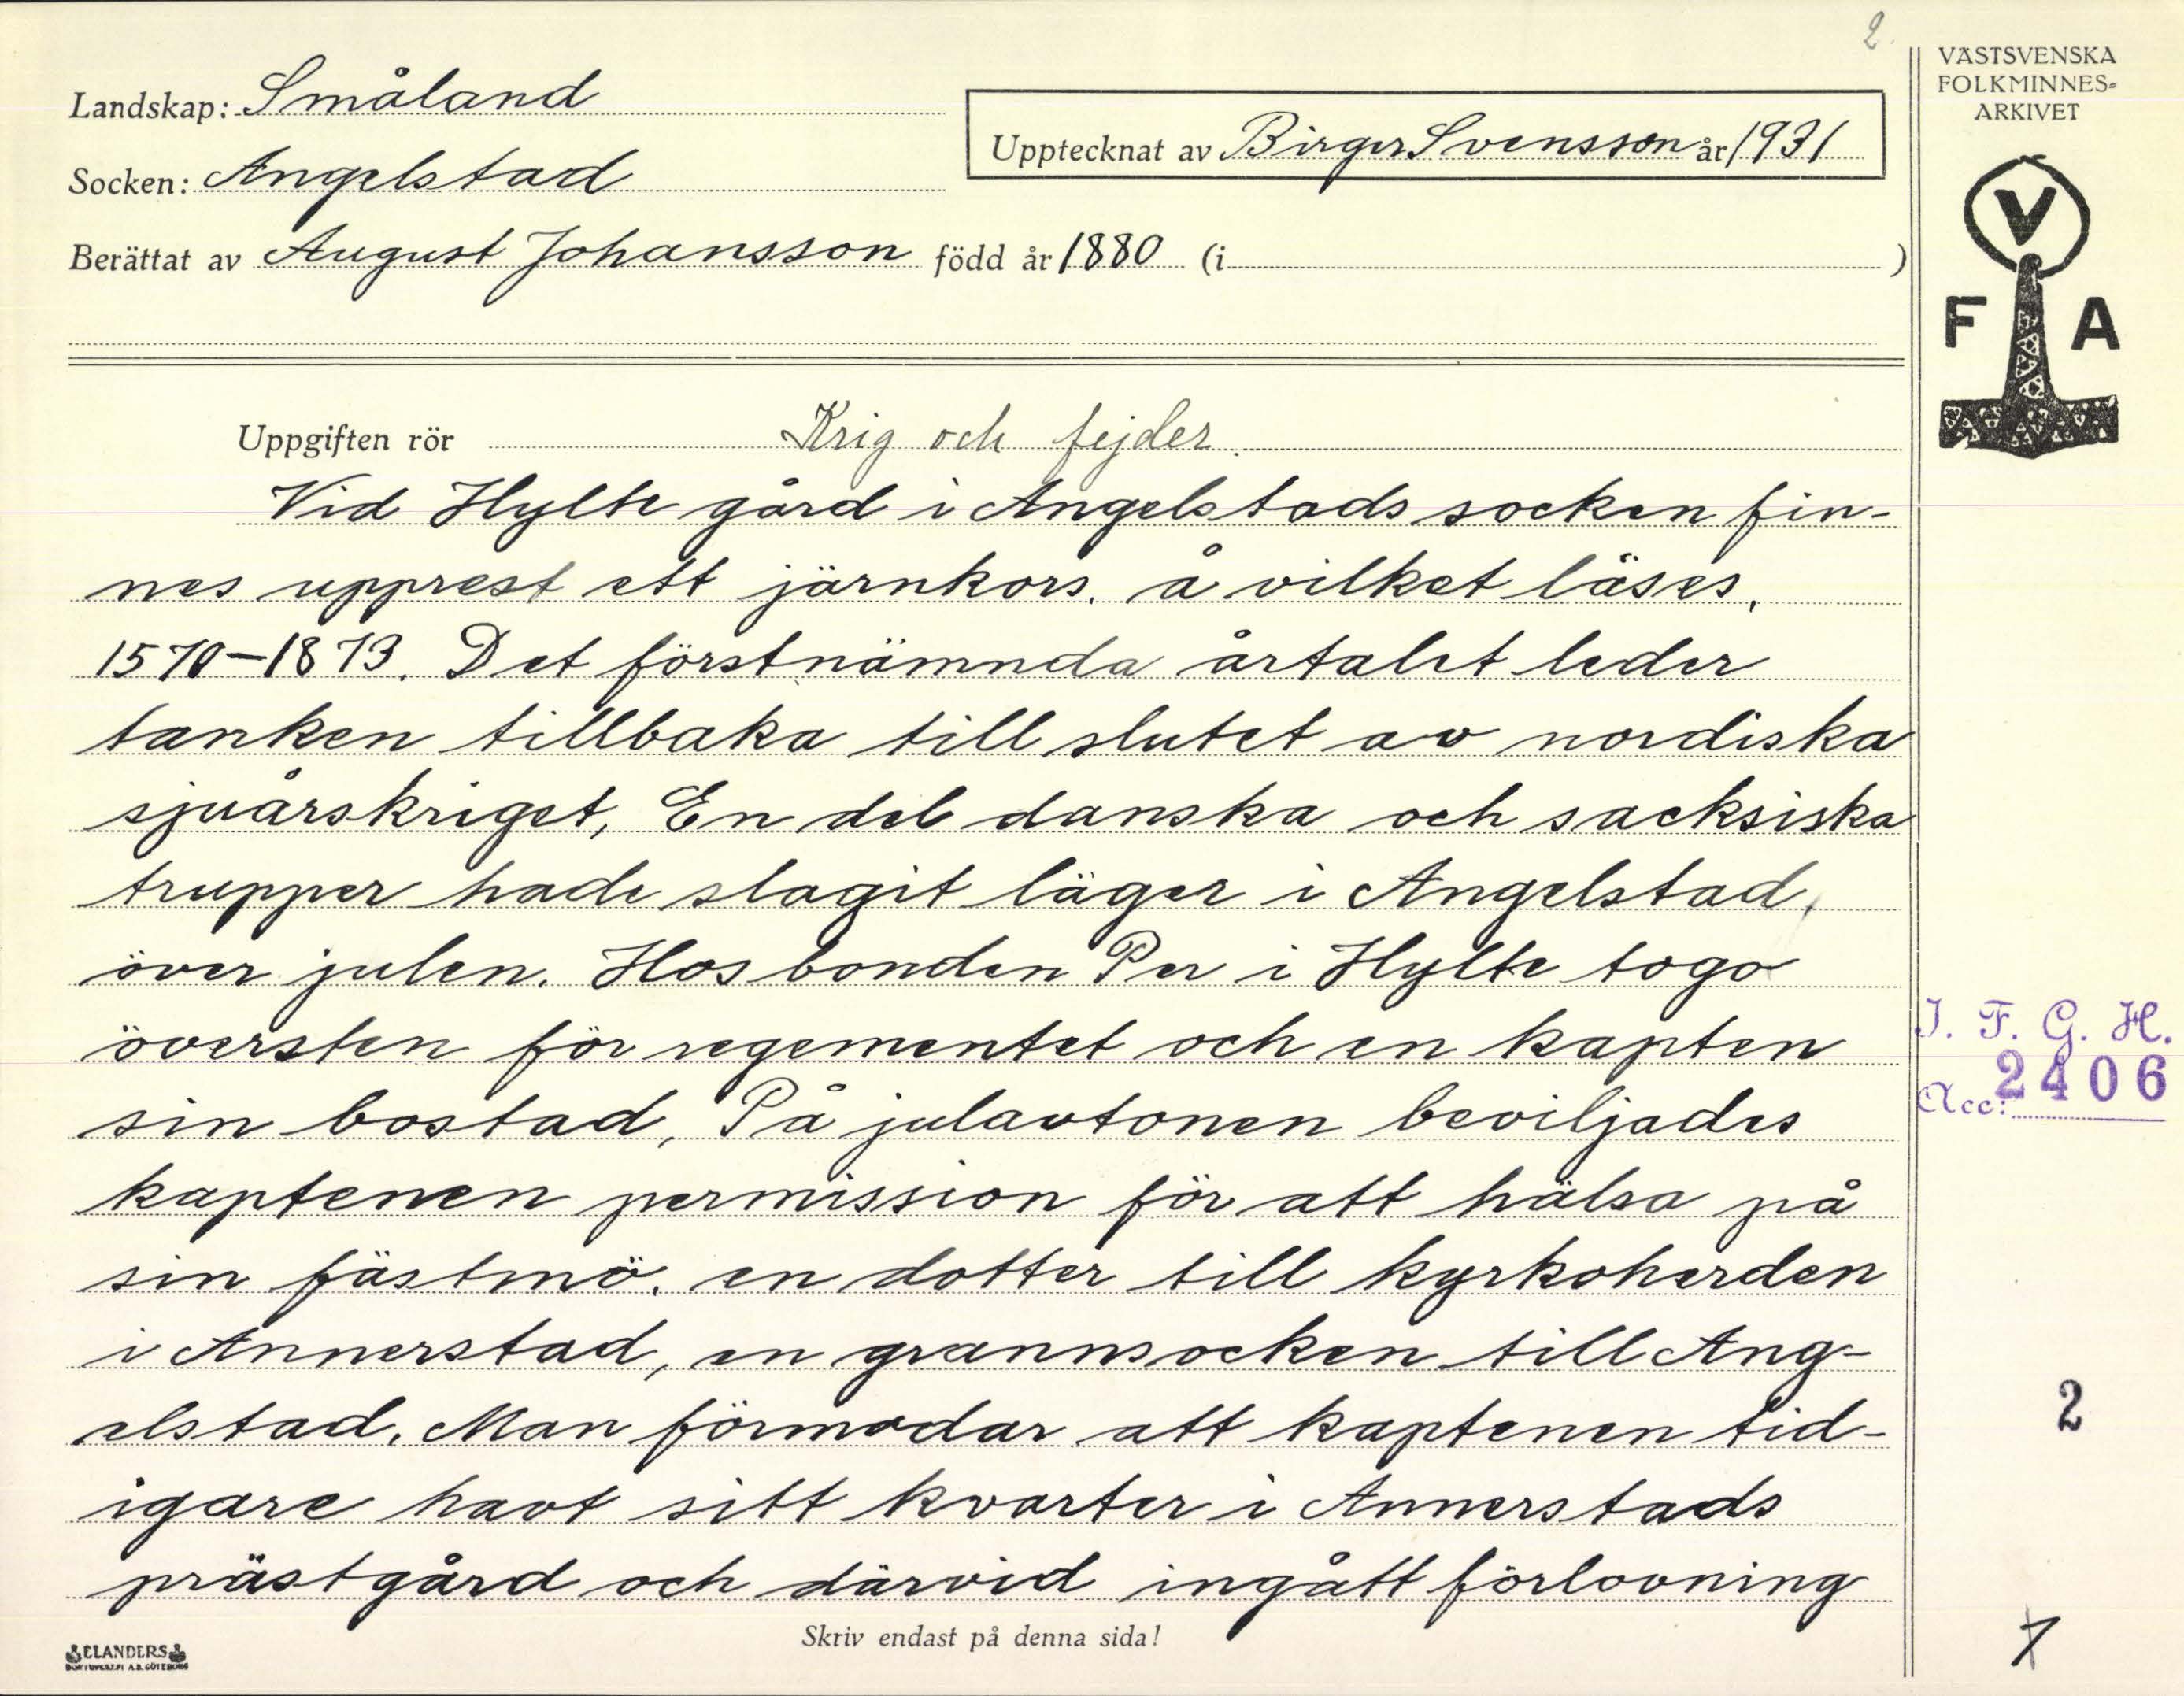 2.
VÄSTSVENSKA
FOLKMINNES=
ARKIVET
Landskap: Småland
Upptecknat av Birger Svensson år 1931
Socken: Angelstad
Berättat av August Johansson född år 1880 (i )
V
F A
Uppgiften rör Krig och fejder.
Vid Hylte gård i Angelstads socken fin-
nes upprest ett järnkors. å vilket läses,
1570-1873. Det förstnämnda årtalet leder
tanken tillbaka till slutet av nordiska
sjuårskriget, En del danska och sacksiska
trupper hade slagit läger i Angelstad,
över julen. Hos bonden Per i Hylte togo
översten för regementet och en kapten
sin bostad, På julavtonen beviljades
kaptenen permission för att hälsa på
sin fästmö. en dotter till kyrkoherden
i Annerstad, en grannsocken till Ang-
elstad. Man förmodar att kaptenen tid-
igare havt sitt kvarter i Annerstads
prästgård och därvid ingått förlovning
I. F. G. H.
Acc: 2406
2
Skriv endast på denna sida!
ELANDERS
BOKTRYCKERI A.B. GÖTEBORG